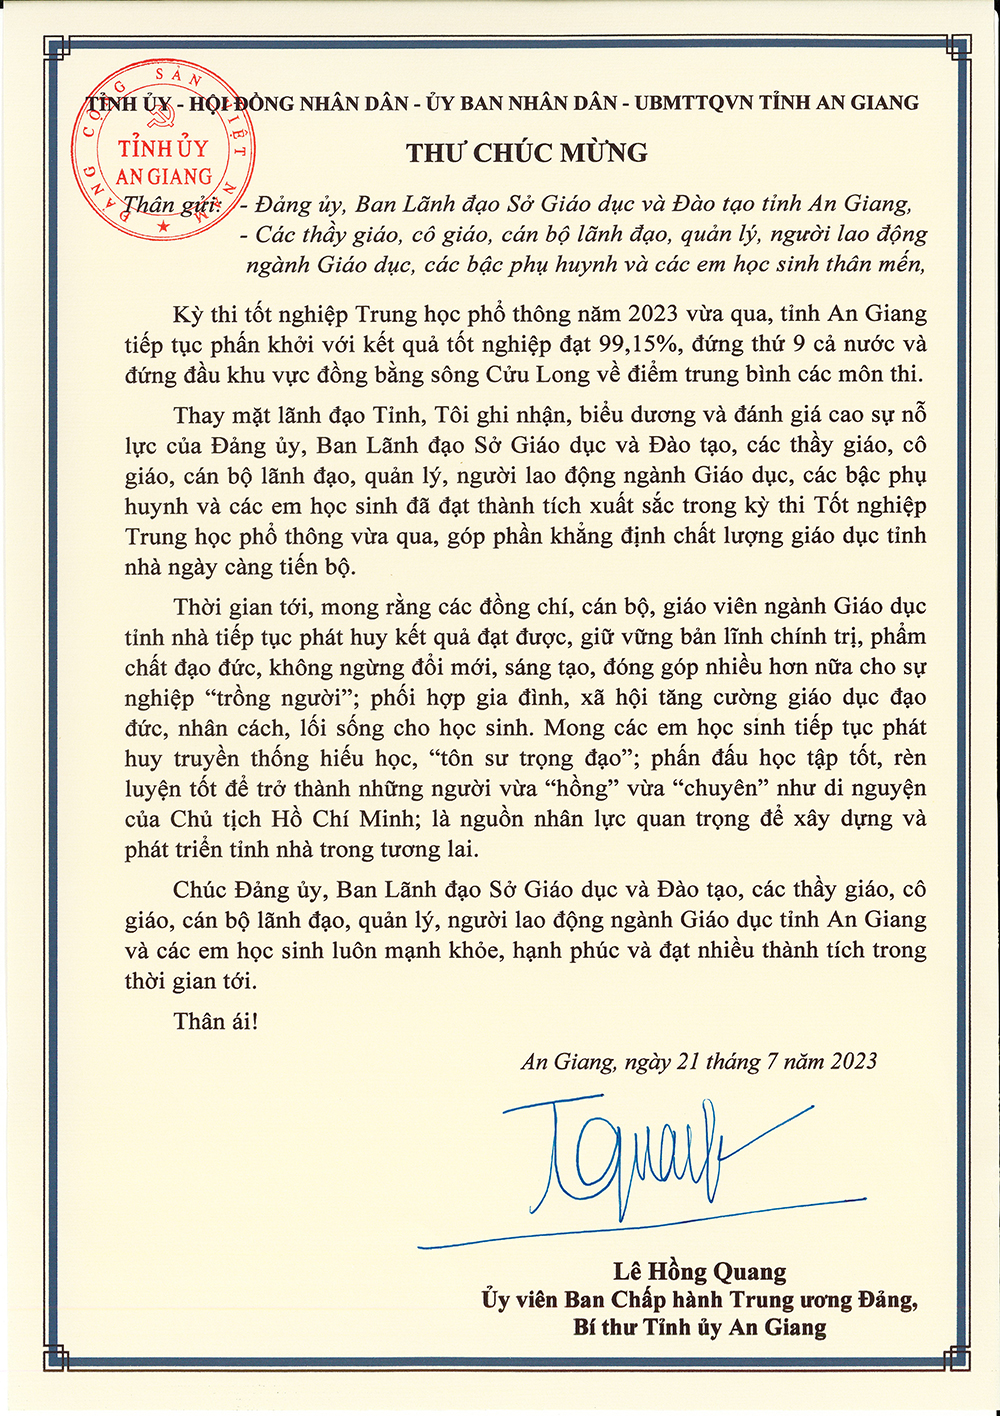 TỈNH ỦY - HỘI ĐỒNG NHÂN DÂN - ỦY BAN NHÂN DÂN - UBMTTQVN TỈNH AN GIANG
ĐẢNG CỘNG SẢN VIỆT NAM
TỈNH ỦY
AN GIANG
THƯ CHÚC MỪNG
Thân gửi: - Đảng ủy, Ban Lãnh đạo Sở Giáo dục và Đào tạo tỉnh An Giang,
- Các thầy giáo, cô giáo, cán bộ lãnh đạo, quản lý, người lao động
ngành Giáo dục, các bậc phụ huynh và các em học sinh thân mến,
Kỳ thi tốt nghiệp Trung học phổ thông năm 2023 vừa qua, tỉnh An Giang
tiếp tục phấn khởi với kết quả tốt nghiệp đạt 99,15%, đứng thứ 9 cả nước và
đứng đầu khu vực đồng bằng sông Cửu Long về điểm trung bình các môn thi.
Thay mặt lãnh đạo Tỉnh, Tôi ghi nhận, biểu dương và đánh giá cao sự nỗ
lực của Đảng ủy, Ban Lãnh đạo Sở Giáo dục và Đào tạo, các thầy giáo, cô
giáo, cán bộ lãnh đạo, quản lý, người lao động ngành Giáo dục, các bậc phụ
huynh và các em học sinh đã đạt thành tích xuất sắc trong kỳ thi Tốt nghiệp
Trung học phổ thông vừa qua, góp phần khẳng định chất lượng giáo dục tỉnh
nhà ngày càng tiến bộ.
Thời gian tới, mong rằng các đồng chí, cán bộ, giáo viên ngành Giáo dục
tỉnh nhà tiếp tục phát huy kết quả đạt được, giữ vững bản lĩnh chính trị, phẩm
chất đạo đức, không ngừng đổi mới, sáng tạo, đóng góp nhiều hơn nữa cho sự
nghiệp “trồng người”; phối hợp gia đình, xã hội tăng cường giáo dục đạo
đức, nhân cách, lối sống cho học sinh. Mong các em học sinh tiếp tục phát
huy truyền thống hiếu học, “tôn sư trọng đạo”; phấn đấu học tập tốt, rèn
luyện tốt để trở thành những người vừa “hồng” vừa “chuyên” như di nguyện
của Chủ tịch Hồ Chí Minh; là nguồn nhân lực quan trọng để xây dựng và
phát triển tỉnh nhà trong tương lai.
Chúc Đảng ủy, Ban Lãnh đạo Sở Giáo dục và Đào tạo, các thầy giáo, cô
giáo, cán bộ lãnh đạo, quản lý, người lao động ngành Giáo dục tỉnh An Giang
và các em học sinh luôn mạnh khỏe, hạnh phúc và đạt nhiều thành tích trong
thời gian tới.
Thân ái!
An Giang, ngày 21 tháng 7 năm 2023
Lê Hồng Quang
Ủy viên Ban Chấp hành Trung ương Đảng,
Bí thư Tỉnh ủy An Giang